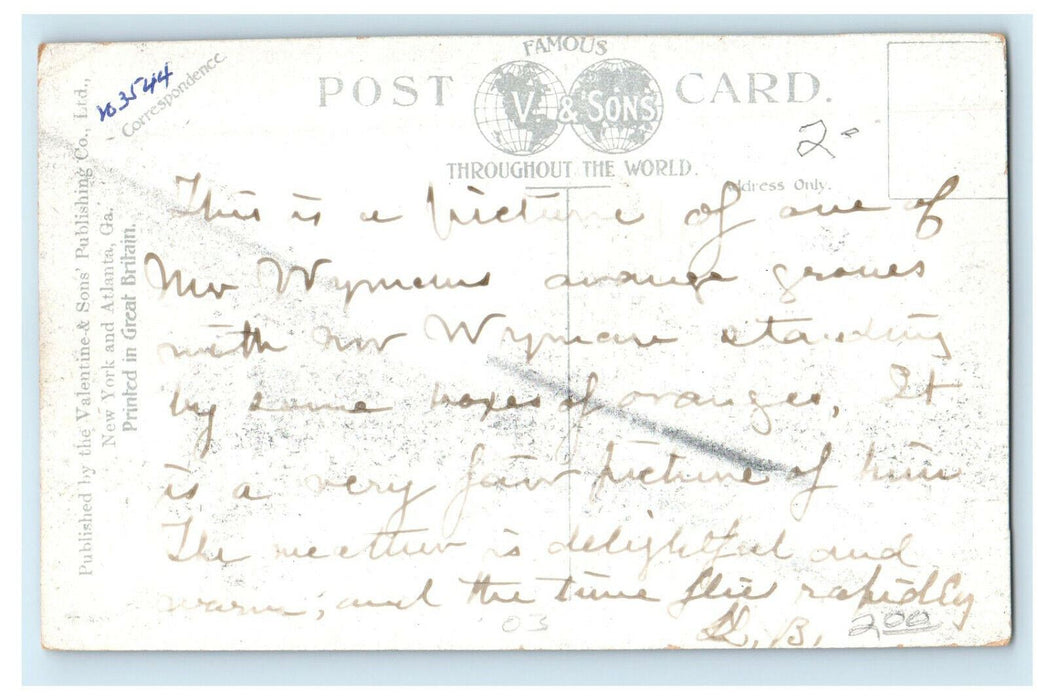 FAMOUS
POST CARD.
V. & SONS
THROUGHOUT THE WORLD.
163544
Correspondence.
Address Only.
2-
Published by the Valentine & Sons' Publishing Co., Ltd.,
New York and Atlanta, Ga.
Printed in Great Britain.
This is a picture of one of
Mr Wymans orange groves
with Mr Wyman standing
by some boxes of oranges. It
is a very fair picture of him
The weather is delightful and
warm; and the time flies rapidly
B.
03
2 00